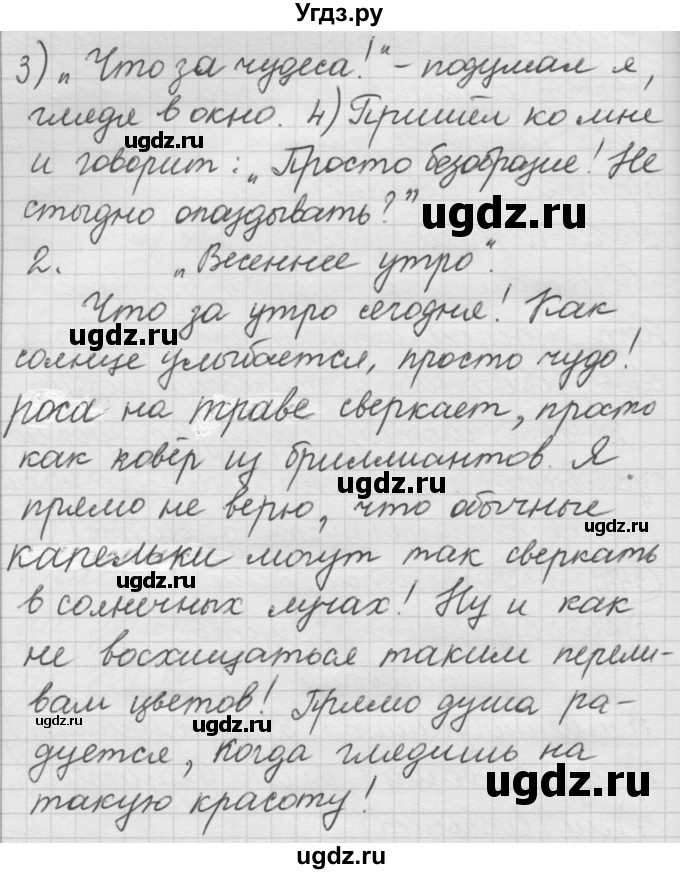 Угдз.ру
3) „Что за чудеса!" - подумал я,
глядя в окно. 4) Пришёл ко мне
ugdz.ru
и говорит: „Просто безобразие! Не
ugdz.ru
стыдно опаздывать?"
ugdz.ru
2. „Весеннее утро".
Что за утро сегодня! Как
ugdz.ru
солнце улыбается, просто чудо!
роса на траве сверкает, просто
ugdz.ru
как ковёр из бриллиантов. Я
ugdz.ru
прямо не верю, что обычные
ugdz.ru
капельки могут так сверкать
ugdz.ru
в солнечных лучах! Ну и как
не восхищаться таким перели-
вам цветов! Прямо душа ра-
ugdz.ru
ugdz.ru
дуется, когда глядишь на
ugdz.ru
такую красоту!
ugdz.ru
ugdz.ru